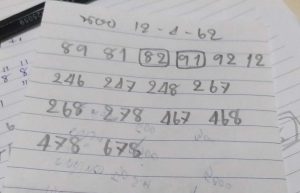 งวด 12-1-62
89 81 82 91 92 12
246 247 248 267
268 - 278 467 468
478 678